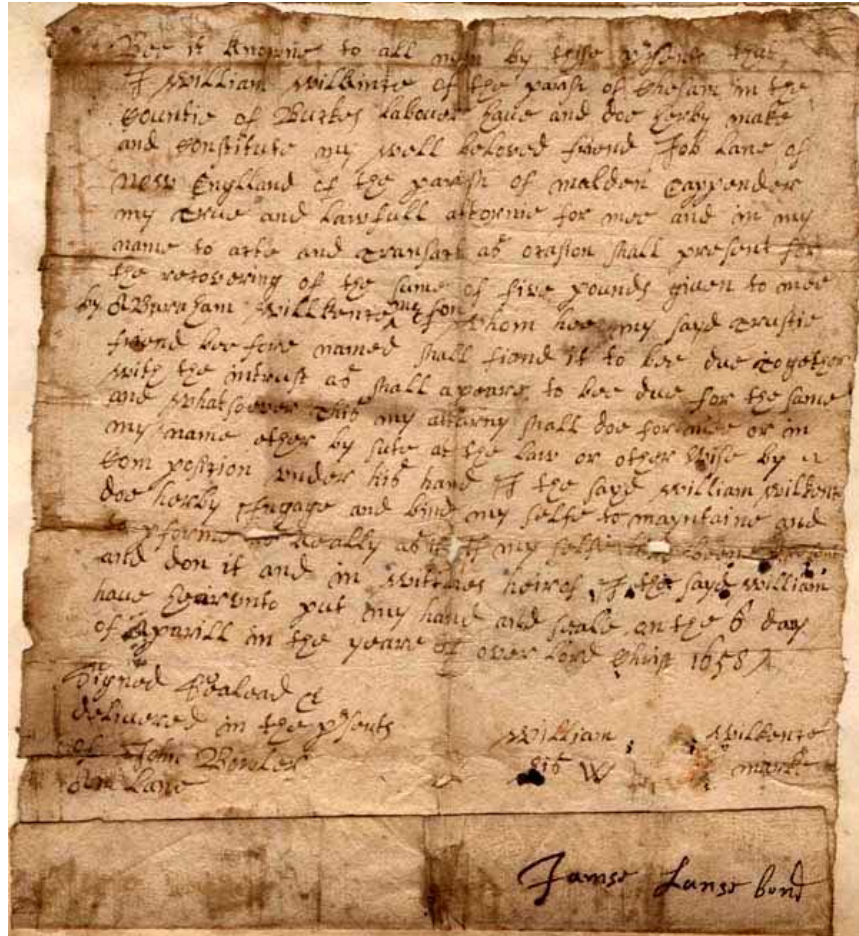 Bee it knowne to all men by these p'sents that
I William Wilkinte of the parish of Chesam in the
Countie of Buckes Labouer have and doe herby make
and Constitute my well beloved friend Job Lane of
New Englland of the parish of malden Carpender
my true and Lawfull attornie for mee and in my
name to acte and transact as ocasion shall present for
the recovering of the sume of five pounds given to mee
by Abaraham Willkente my son Whom hee my sayd trustie
friend beefore named shall fiend it to bee due together
with the intrust as shall apeare to bee due for the same
and whatsoever this my attorny shall doe for mee or in
my name ether by sute at the law or other wise by a
Com position under his hand I the sayd William Wilkente
doe herby Engage and bind my selfe to mayntaine and
to p'forme as Really as if I my selfe had been
and don it and in witnes heirof I the sayd William
have heirunto put my hand and seale on the 6 day
of Aparill in the yeare of over Lord Christ 1658
Signed Sealead &
delivered in the p'sents
of John Bowler
Lane
William Wilkente
his W marke
Jamse Lanse bond